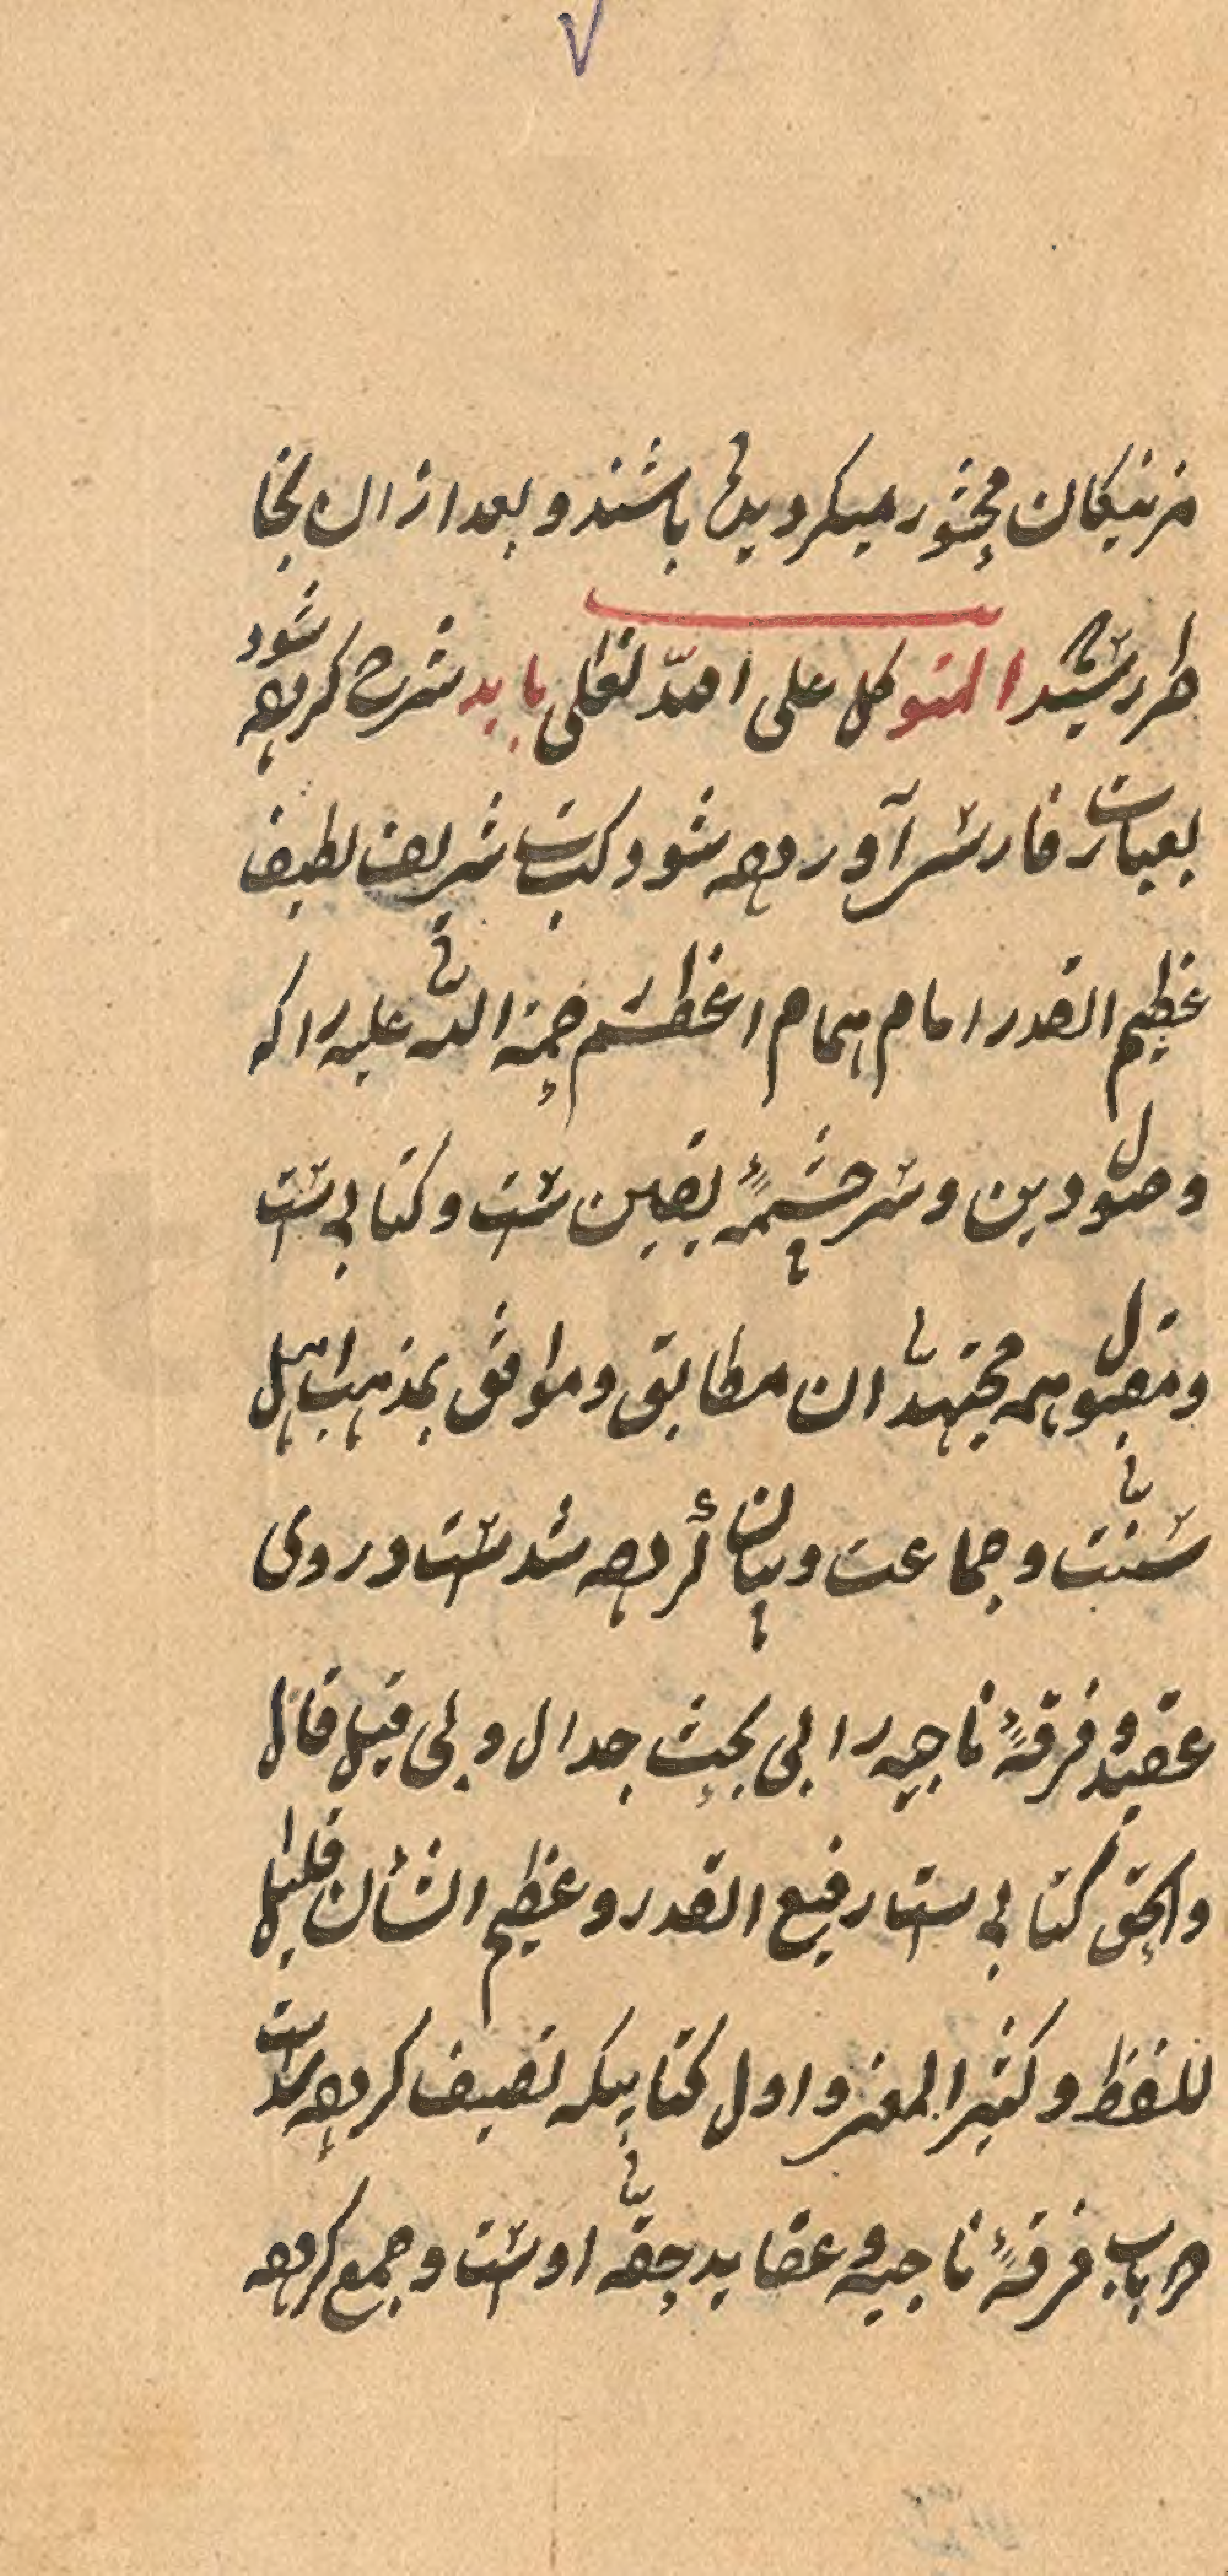 ۷
مزنیکان محثور میکردیده باشند و بعد از ان بخا
طر رسید المتوکل علی الله تعلی باید شرح کرده شود
بعبارت فارسی آورده شود کتاب شریف لطیف
عظیم القدر امام همام اعظم رحمة الله علیه را که
وصول دین و سرچشمهٔ یقین ست و کتابی ست
ومقبول همه مجتهدان مطابق و موافق بمذهب اهل
سنّت و جماعت و بیان کرده شدست در وی
عقیده فرقهٔ ناجیه را بی بحث جدال و بی قیل قال
والحق کتابی ست رفیع القدر و عظیم الشأن قلیل
للفظ و کثیر المعنی و اول کتابیکه تصیف کرده شدست
در باب فرقهٔ ناجیه و عقاید حقّه اوست و جمع کرده